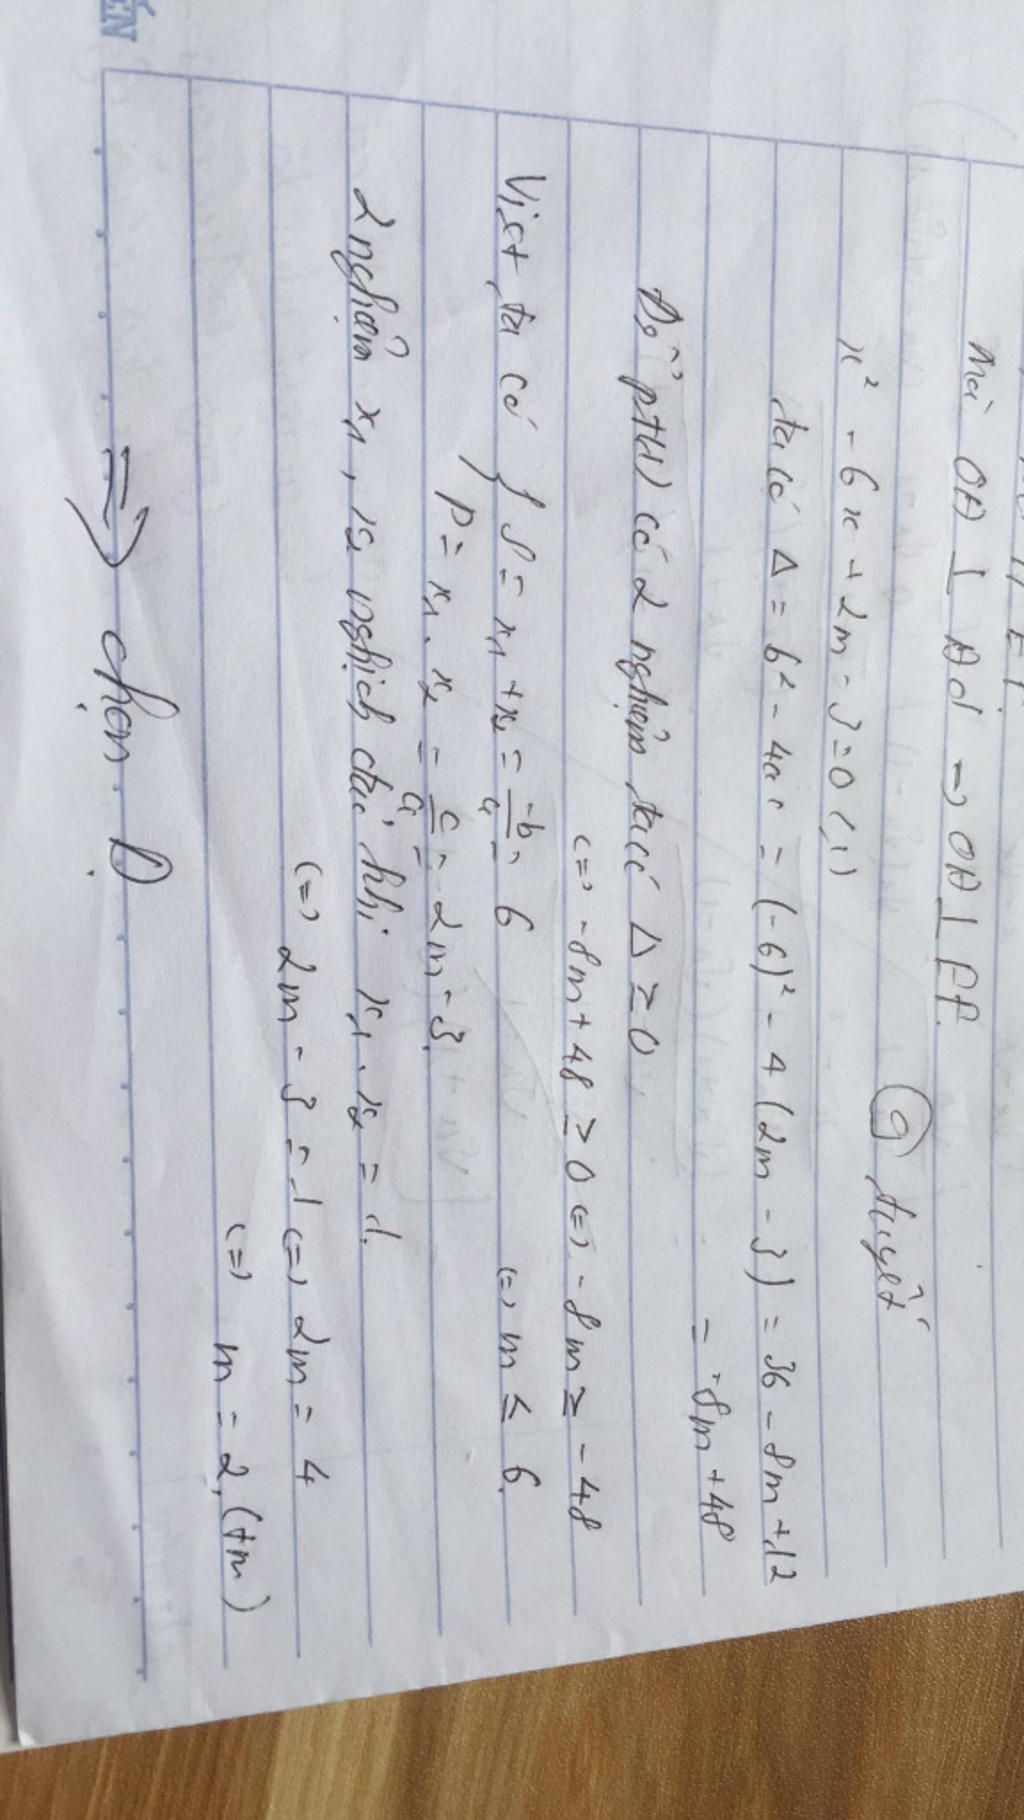 Mà OA ⊥ Ad → OA ⊥ EF.
9 tuyết
x² - 6x + 2m - 3 = 0 (1)
ta có Δ = b² - 4ac = (-6)² - 4(2m - 3) = 36 - 8m + 12
= -8m + 48
Để pt(1) có 2 nghiệm, ta có Δ ≥ 0
(=) -8m + 48 ≥ 0 (=) -8m ≥ -48
(=) m ≤ 6.
Viet, ta có { S = x₁ + x₂ = -b/a = 6
P = x₁ . x₂ = c/a = 2m - 3
2 nghiệm x₁, x₂ nghịch đảo khi x₁ . x₂ = 1.
(=) 2m - 3 = 1 (=) 2m = 4
(=) m = 2 (tm)
⇒ chọn D
ẾN